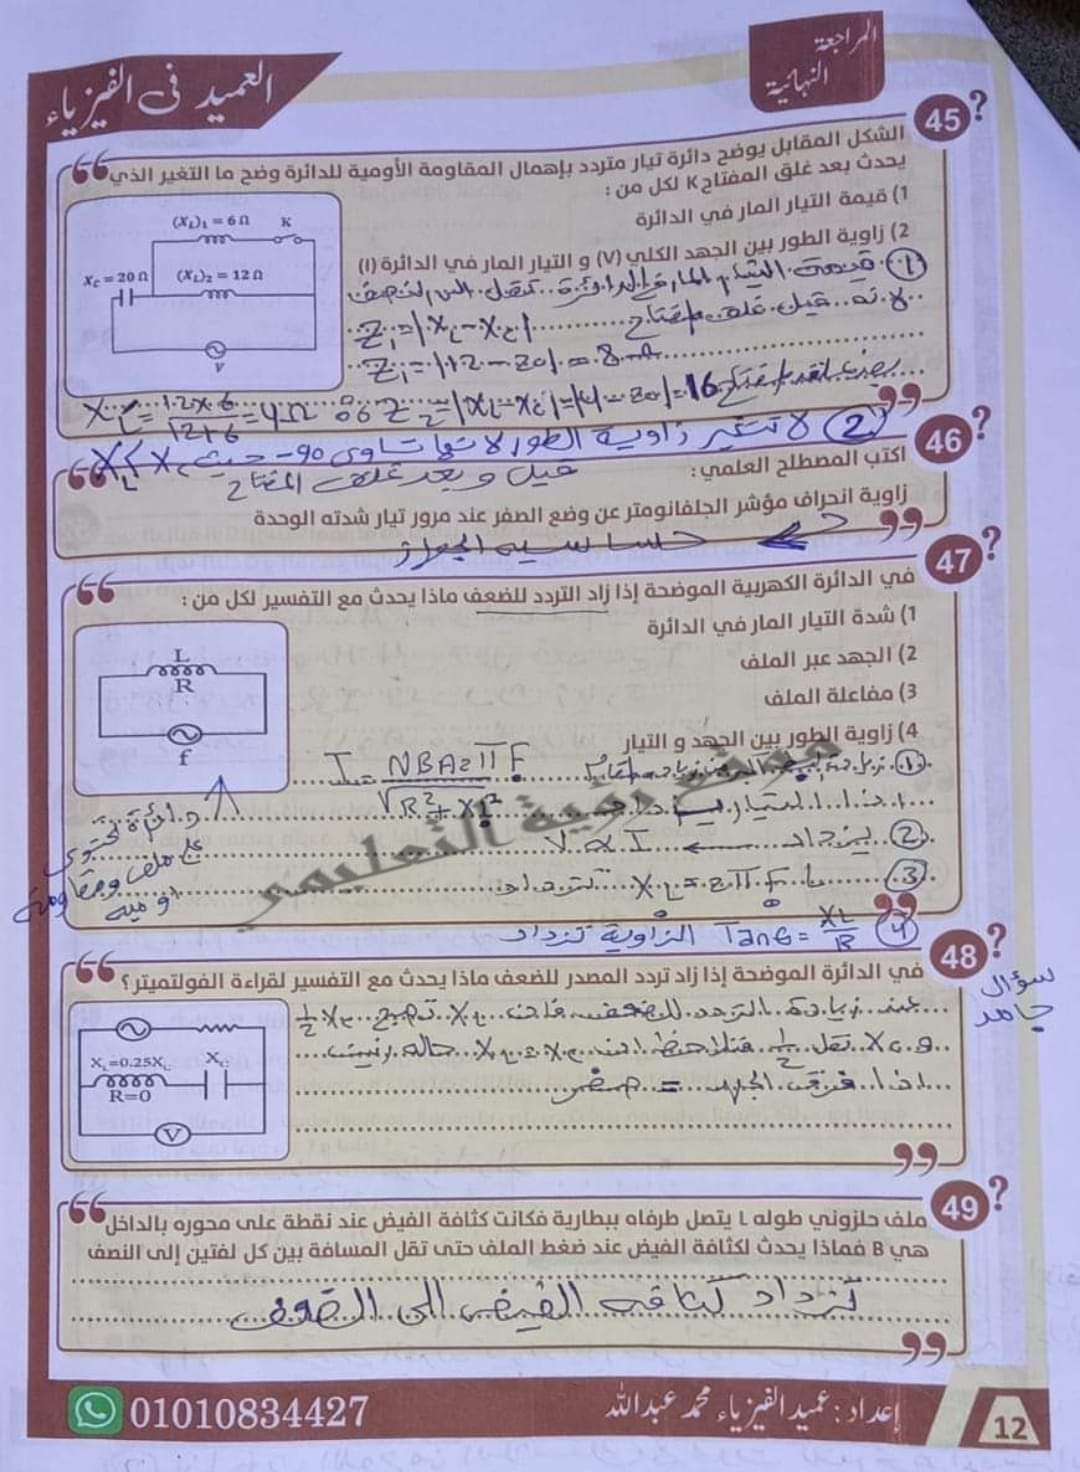 المراجعة
النهائية
العميد فى الفيزياء
45
الشكل المقابل يوضح دائرة تيار متردد بإهمال المقاومة الأومية للدائرة وضح ما التغير الذي
يحدث بعد غلق المفتاح K لكل من :
1) قيمة التيار المار في الدائرة
2) زاوية الطور بين الجهد الكلي (V) و التيار المار في الدائرة (I)
(X_L)₁ = 6 Ω K
X_C = 20 Ω (X_L)₂ = 12 Ω
V
① قيمة التيار المار في الدائرة تقل الى النصف
لانه قبل غلق المفتاح Z₁ = |X_L - X_C|
Z₁ = |12 - 20| = 8 Ω
بعد غلق المفتاح X_L = 12×6/12+6 = 4Ω ∴ Z₂ = |X_L - X_C| = |4 - 20| = 16
② لا تتغير زاوية الطور لانها تساوى 90- حيث X_C > X_L
قبل وبعد غلق المفتاح
46
اكتب المصطلح العلمي :
زاوية انحراف مؤشر الجلفانومتر عن وضع الصفر عند مرور تيار شدته الوحدة
حساسيه الجهاز
47
في الدائرة الكهربية الموضحة إذا زاد التردد للضعف ماذا يحدث مع التفسير لكل من :
1) شدة التيار المار في الدائرة
2) الجهد عبر الملف
3) مفاعلة الملف
4) زاوية الطور بين الجهد و التيار
L
R
f
I = NBA2πF/√R²+X_L²
اذا التيار
② يزداد V α I
③ X_L = 2πF L تزداد
④ Tanθ = X_L/R الزاوية تزداد
دائرة تحتوى
على ملف ومقاومة
أوميه
موقع رؤية التعليمي
48
سؤال
جامد
في الدائرة الموضحة إذا زاد تردد المصدر للضعف ماذا يحدث مع التفسير لقراءة الفولتميتر ؟
X_L=0.25X_C X_C
R=0
V
عند زيادة التردد للضعف فان X_L تصبح 1/2 X_C
و X_C تقل 1/2 فنلاحظ ان X_L = X_C حالة رنين
اذا فرق الجهد = صفر
49
ملف حلزوني طوله L يتصل طرفاه ببطارية فكانت كثافة الفيض عند نقطة على محوره بالداخل
هي B فماذا يحدث لكثافة الفيض عند ضغط الملف حتى تقل المسافة بين كل لفتين إلى النصف
تزداد كثافه الفيض الى الضعف
01010834427
إعداد : عميد الفيزياء محمد عبدالله
12